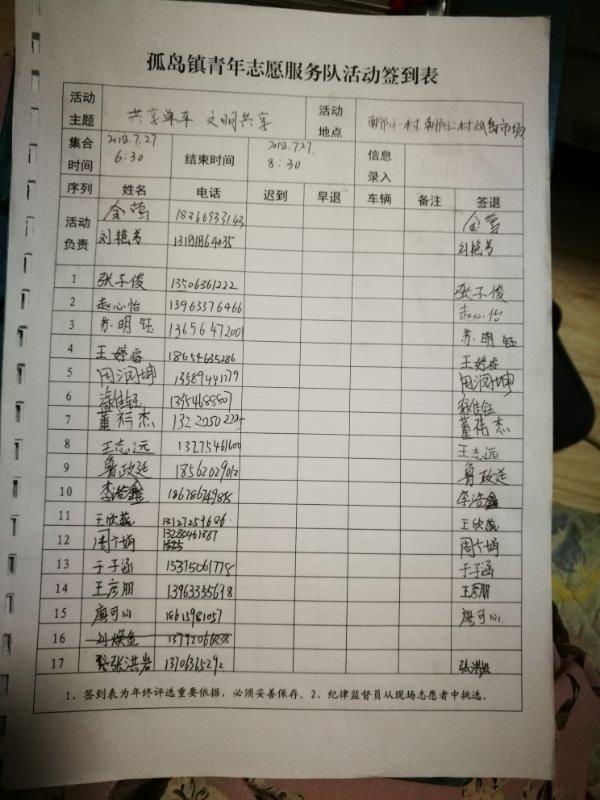 孤岛镇青年志愿服务队活动签到表
活动主题 共享单车 文明共享 活动地点 朝阳一村 朝阳二村 孤岛市场
集合时间 2018.7.27 6:30 结束时间 2018.7.27. 8:30 信息录入
序列 姓名 电话 迟到 早退 车辆 备注 签退
活动负责 金莺 18366933143 金莺
刘艳芳 13181864035 刘艳芳
1 张子俊 13506361222 张子俊
2 赵心怡 13963376466 赵心怡
3 苏明钰 13656472001 苏明钰
4 王婷蓉 18654635286 王婷蓉
5 田润坤 13589441179 田润坤
6 佳钰 佳钰
7 董祎杰 董祎杰
8 王志远 13275461600 王志远
9 鲁政廷 18562029012 鲁政廷
10 李浩鑫 李浩鑫
11 王欣蕊 王欣蕊
12 周 周
13 于子涵 15315061778 于子涵
14 王彦朋 王彦朋
15 廖可心 18615981057 廖可心
16 刘焕金
17 张洪岩 13706365292 张洪岩
1、签到表为年终评选重要依据，必须妥善保存。2、纪律监督员从现场志愿者中挑选。